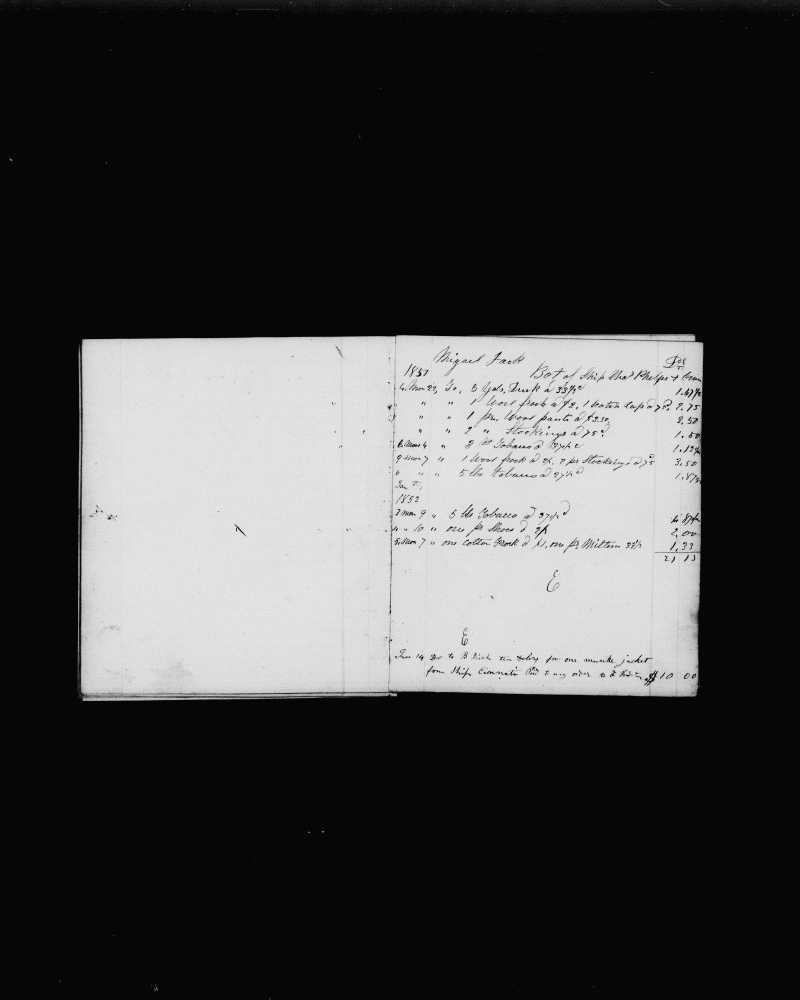 Miguel Jack Dr
1851 Bot of Ship Chas Phelps & Own
4 Mon 22, To, 5 Yds, Duck a 33 1/3 c 1.67 1/2
" " " 1 Wool frock a $2, 1 Scotch Cap a 75 2.75
" " " 1 pr. Wool pants a $2.50 2.50
" " " 2 " Stockings a 75 1.50
6 Mon 4 " 3 lb Tobacco a 37 1/2 c 1.12 1/2
9 Mon 7 " 1 Wool frock a 2$, 2 prs Stockings a 75 3.50
" " " 5 lbs tobacco a 37 1/2 c 1.87 1/2
1852
3 mon 9 " 5 lbs Tobacco a 37 1/2 1.87 1/2
" " 10 " one pr Shoes a 2$ 2.00
5 Mon 7 " one cotton Frock a $1, one pr, Mittens 33 1/3 1,33
21 13
E
E
June 14 Dr to B ten for one munke jacket
from Ship to B $10 00